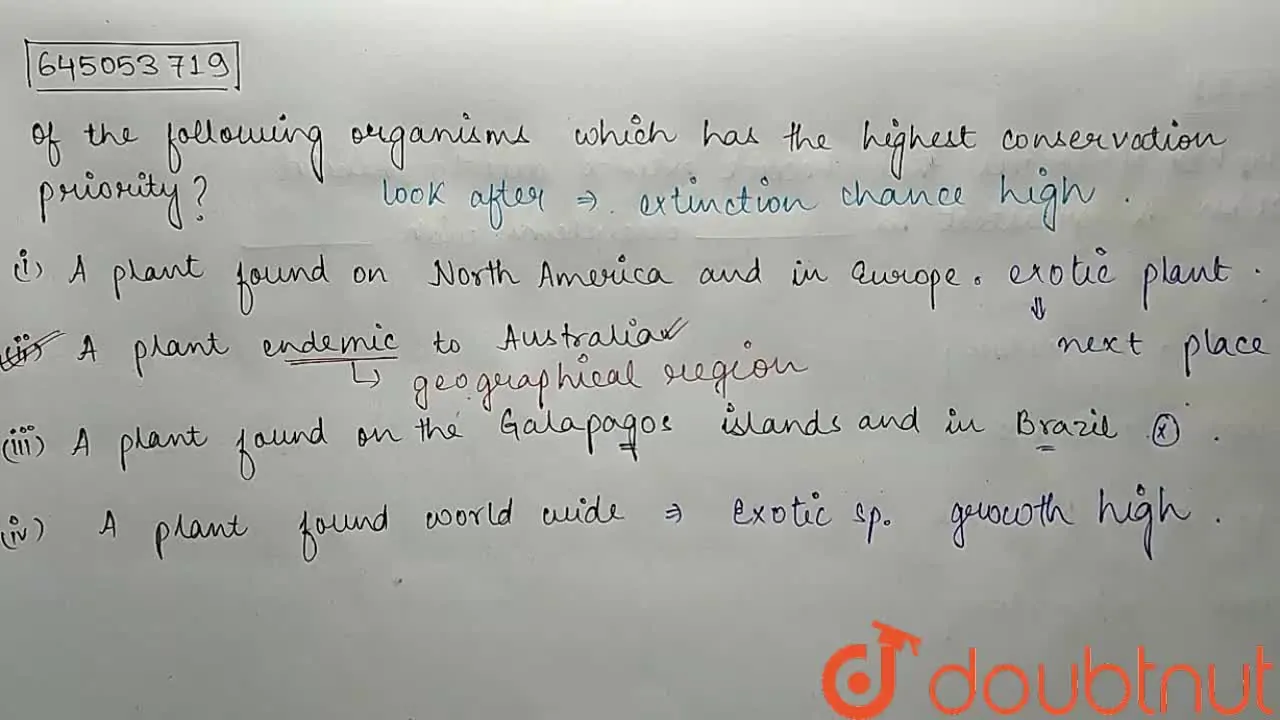 645053719
Of the following organisms which has the highest conservation
priority? look after ⇒ extinction chance high.
(i) A plant found on North America and in Europe. exotic plant.
⇓
(ii) A plant endemic to Australia ✓ next place
↳ geographical region
(iii) A plant found on the Galapagos islands and in Brazil (x).
(iv) A plant found world wide ⇒ exotic sp. growth high.
doubtnut